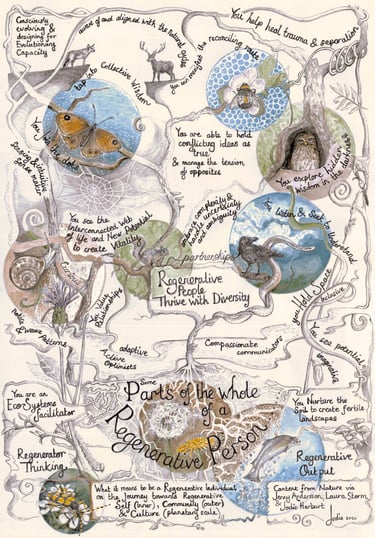 Consciously
evolving &
designing for
Evolutionary
Capacity
aware of and aligned with the natural cycles
You help heal trauma & separation
tap into Collective Wisdom
You manifest the reconciling
You
the dots
Sensing & intuitive
Sense maker
You are able to hold
conflicting ideas as
"true"
& manage the tension
of opposites
You explore Hidden
Wisdom in the darkness
You see the
Interconnected Web
of life and New Potential
to create Vitality
embrace complexity &
uncertainty
and ambiguity
You listen & Seek to understand
partnerships
Regenerative
People
Thrive with Diversity
You Value
Relationships
you Hold Space
inclusive
notice
Diverse Patterns
adaptive
Active
optimists
Compassionate
communicators
You see potential
imaginative
Some
Parts of the Whole
of a
Regenerative Person
You are an
EcoSystems
facilitator
You Nurture the
Soil to create fertile
landscapes
Regenerator
Thinking
Regenerative
Output
What it means to be a Regenerative Individual
on the Journey towards Regenerative
Self (inner), Community (outer)
& Culture (planetary scale)
Content from Nature via
Jenny Andersson, Laura Storm
& Jodie Harburt
Jodie 2020